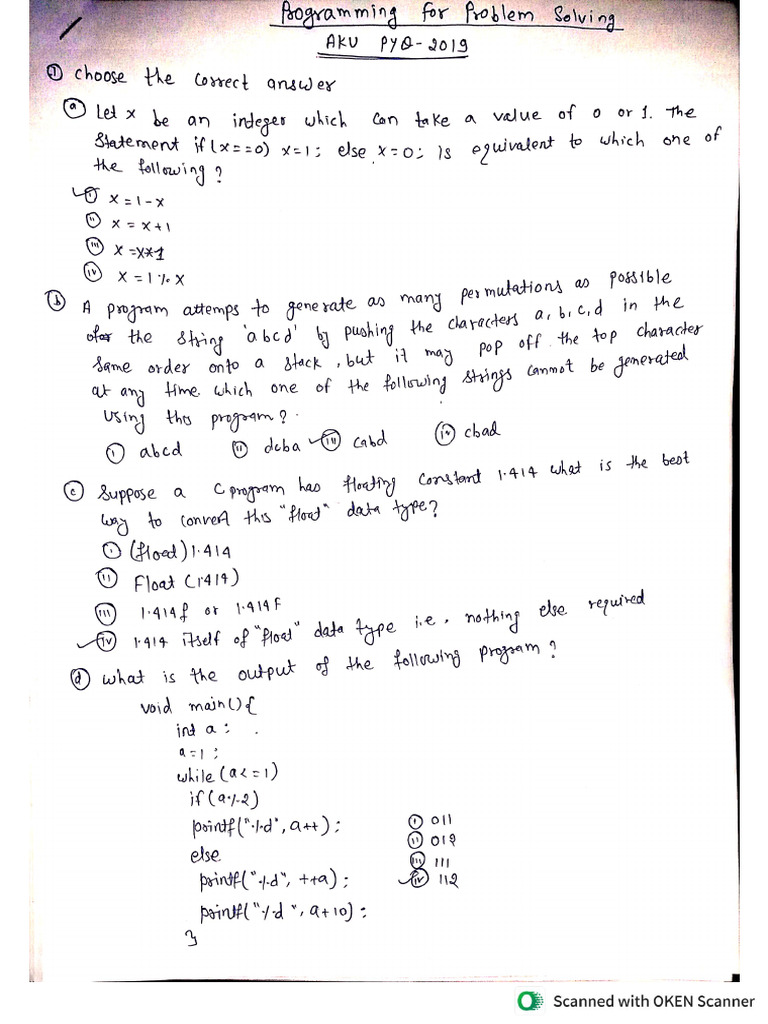 Programming for Problem Solving
AKU PYQ-2019
① Choose the correct answer
ⓐ Let x be an integer which can take a value of 0 or 1. The
Statement if(x==0) x=1; else x=0; is equivalent to which one of
the following?
ⓘ x=1-x
ⓘⓘ x = x+1
ⓘⓘⓘ x =x*1
ⓘⓥ x =1%x
ⓑ A program attemps to generate as many permutations as possible
of the string 'abcd' by pushing the characters a,b,c,d in the
same order onto a stack, but it may pop off the top character
at any time which one of the following strings cannot be generated
using this program?
ⓘ abcd ⓘⓘ dcba ⓘⓘⓘ cabd ⓘⓥ cbad
ⓒ Suppose a C program has floating constant 1.414 what is the best
way to convert this "float" data type?
ⓘ (float)1.414
ⓘⓘ Float (1.414)
ⓘⓘⓘ 1.414f or 1.414F
ⓘⓥ 1.414 itself of "float" data type i.e. nothing else required
ⓓ what is the output of the following program?
void main(){
int a;
a=1;
while (a<=1)
if(a%2)
printf("%d", a++); ⓘ 011
else ⓘⓘ 012
printf("%d", ++a); ⓘⓘⓘ 111
printf("%d", a+10); ⓘⓥ 112
}
Scanned with OKEN Scanner